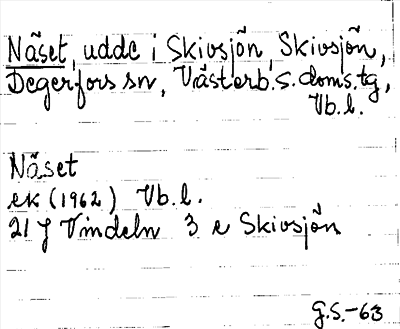 Näset, udde i Skivsjön, Skivsjön,
Degerfors sn, Västerb.s. doms.tg,
Vb.l.
Näset
ek (1962) Vb.l.
21 J Vindeln 3 e Skivsjön
G.S.-63